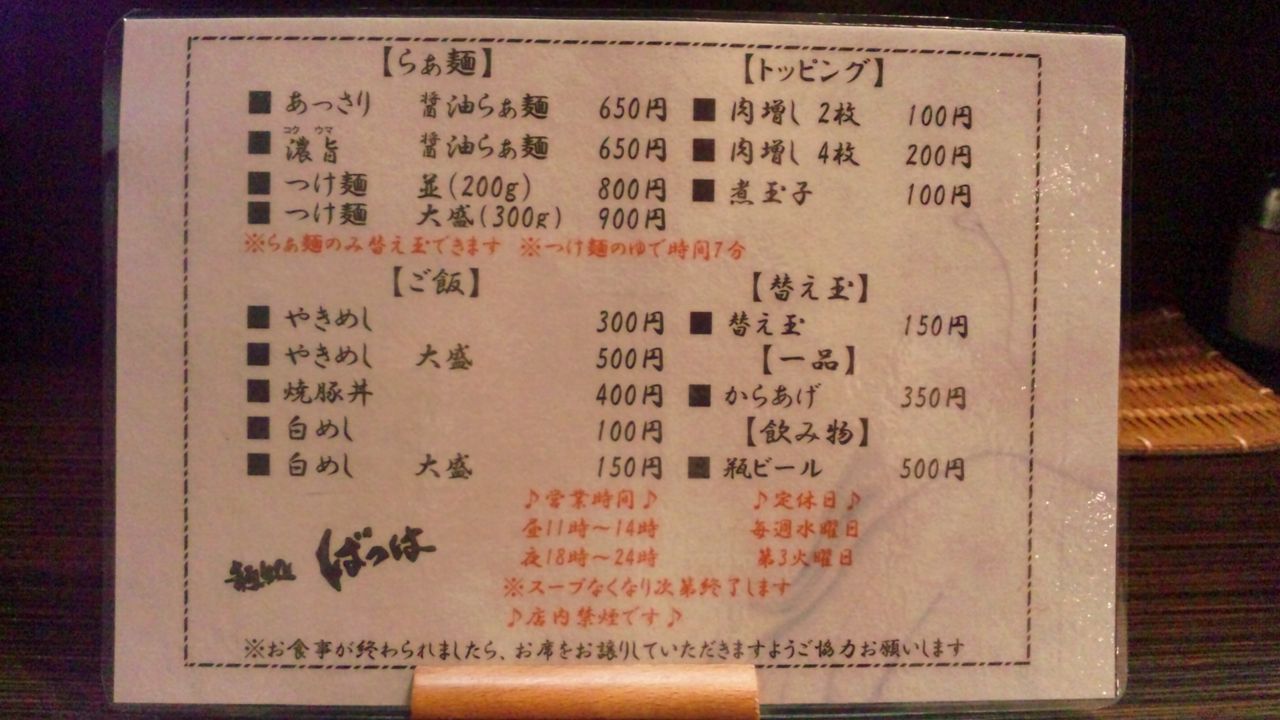 【らぁ麺】
■ あっさり 醤油らぁ麺 650円
コク ウマ
■ 濃旨 醤油らぁ麺 650円
■ つけ麺 並(200g) 800円
■ つけ麺 大盛(300g) 900円
※らぁ麺のみ替え玉できます ※つけ麺のゆで時間7分
【ご飯】
■ やきめし 300円
■ やきめし 大盛 500円
■ 焼豚丼 400円
■ 白めし 100円
■ 白めし 大盛 150円
【トッピング】
■ 肉増し 2枚 100円
■ 肉増し 4枚 200円
■ 煮玉子 100円
【替え玉】
■ 替え玉 150円
【一品】
■ からあげ 350円
【飲み物】
■ 瓶ビール 500円
麺処 ばっは
♪営業時間♪
昼11時～14時
夜18時～24時
♪定休日♪
毎週水曜日
第3火曜日
※スープなくなり次第終了します
♪店内禁煙です♪
※お食事が終わられましたら、お席をお譲りしていただきますようご協力お願いします